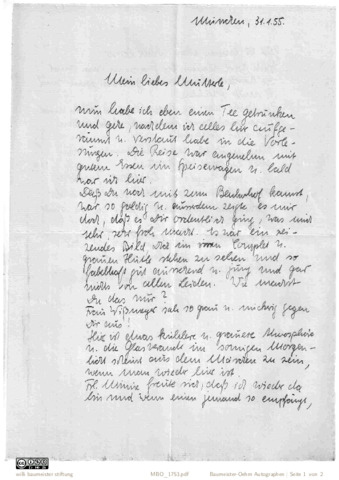 München, 31.1.55.
Mein liebes Mutterle,
nun habe ich eben einen Tee getrunken
und gehe, nachdem ich alles hier aufge-
räumt u. verstaut habe in die Vorle-
sungen. Die Reise war angenehm mit
gutem Essen im Speisewagen u. bald
war ich hier.
Daß Du noch mit zum Bahnhof kamst,
war so goldig u. ausserdem zeigte es mir
doch, daß es Dir ordentlich ging, was mich
sehr, sehr froh macht. Es war ein rei-
zendes Bild Dich im Complet u.
grauen Hütle stehen zu sehen und so
fabelhaft gut aussehend u. jung und gar
nichts von allen Leiden. Wie machst
Du das nur?
Frau Wißmayer sah so grau u. mickrig gegen
Dir aus!
Hier ist etwas kühlere u. grauere Atmosphäre
u. die Glaswand im sonnigen Morgen-
licht scheint aus dem Märchen zu sein,
wenn man wieder hier ist.
Frl. Minie freute sich, daß ich wieder da
bin und wenn einen jemand so empfängt,
willi baumeister stiftung
MBO_1753.pdf
Baumeister-Oehm Autographen : Seite 1 von 2